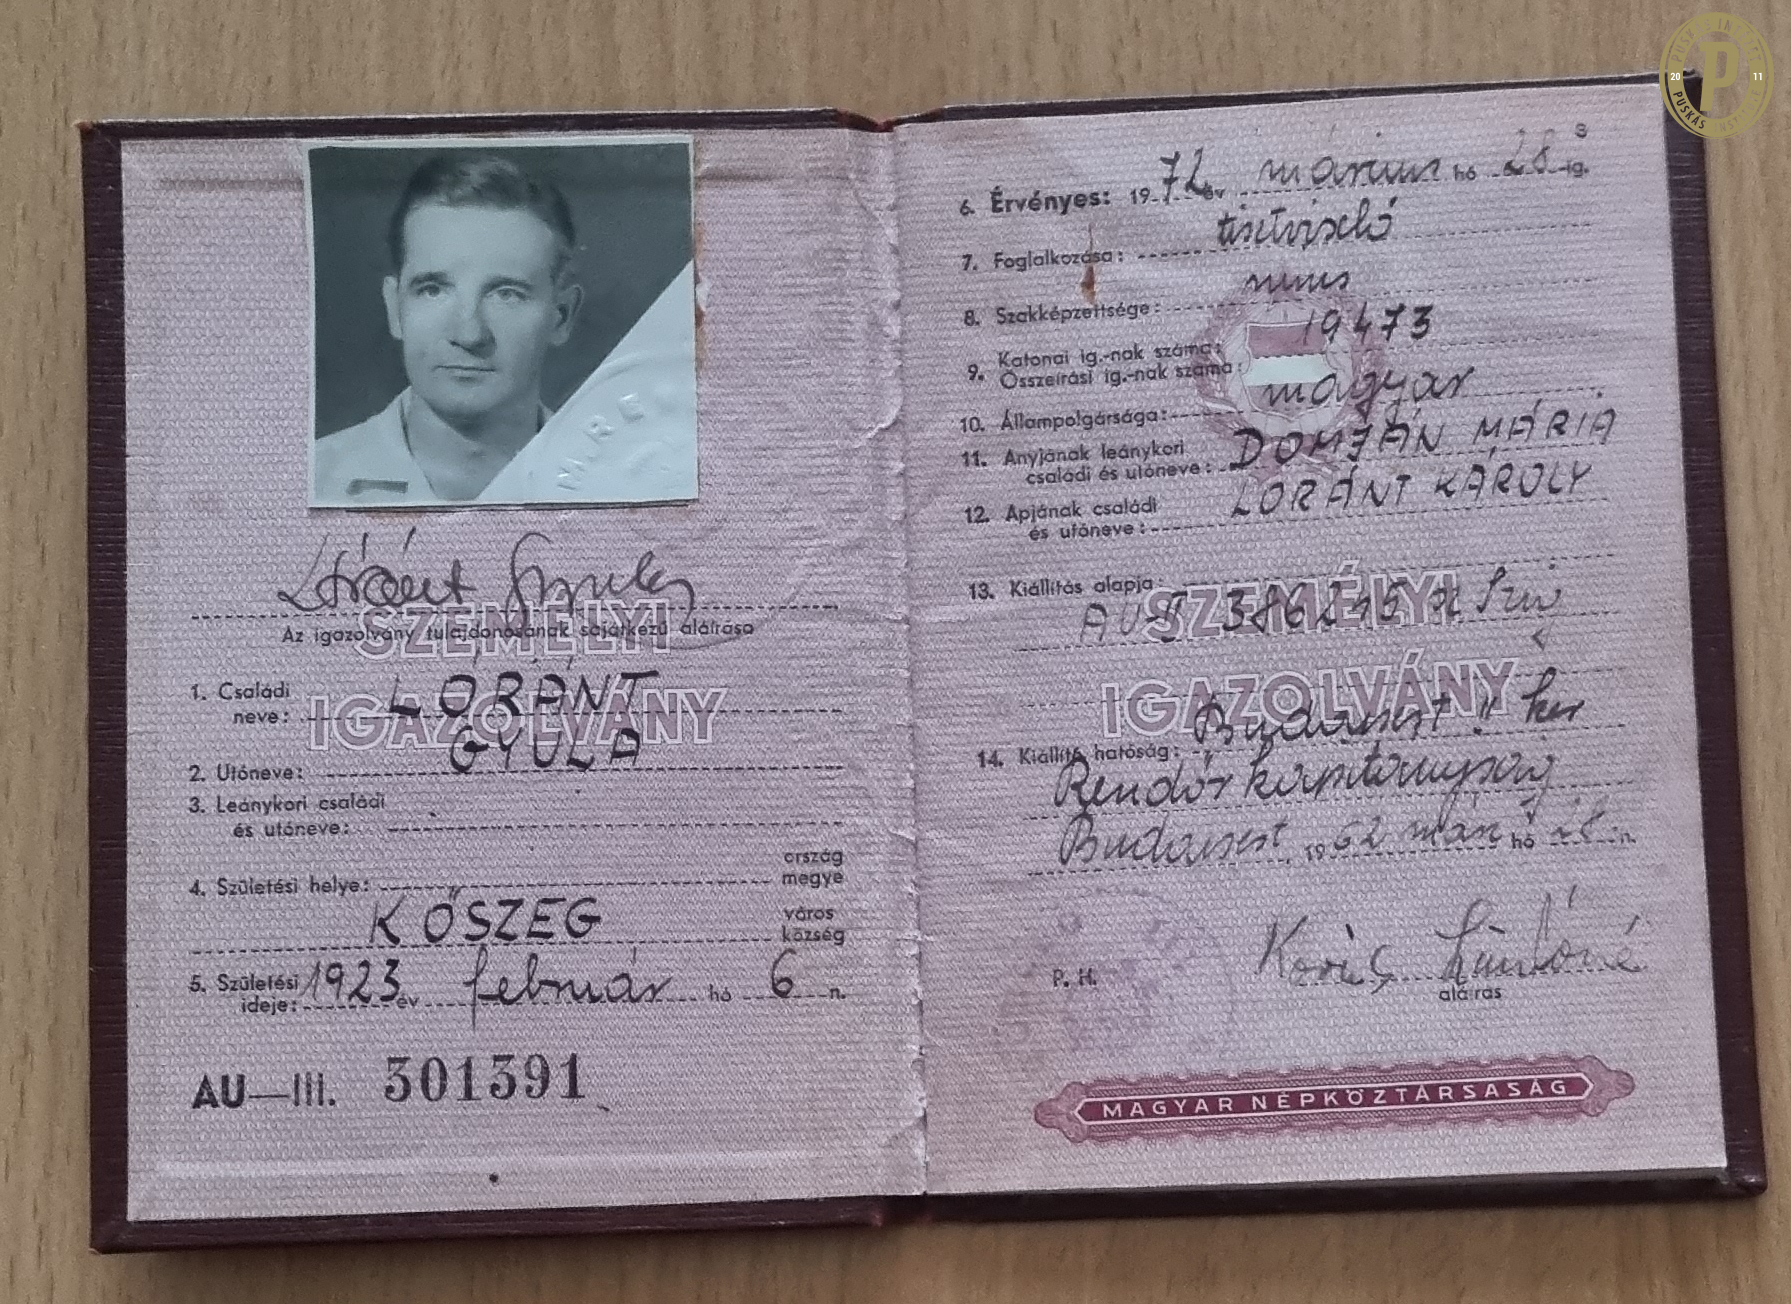 Lóránt Gyula
Az igazolvány tulajdonosának sajátkezű aláírása
SZEMÉLYI
IGAZOLVÁNY
1. Családi
neve: LÓRÁNT
2. Utóneve: GYULA
3. Leánykori családi
és utóneve:
4. Születési helye: ország
megye
KŐSZEG város
község
5. Születési
ideje: 1923 év február hó 6 n.
AU—III. 301391
3
6. Érvényes: 1972 év március hó 28-ig.
7. Foglalkozása: tisztviselő
8. Szakképzettsége: nincs
9. Katonai ig.-nak száma: 19473
Összeírási ig.-nak száma:
10. Állampolgársága: magyar
11. Anyjának leánykori
családi és utóneve: DOMJÁN MÁRIA
12. Apjának családi
és utóneve: LORÁNT KÁROLY
13. Kiállítás alapja:
AU-II 386245
SZEMÉLYI
IGAZOLVÁNY
14. Kiállító hatóság: Budapest II ker
Rendőrkapitányság
Budapest, 1962 márc hó 28 n.
P. H.
aláírás
MAGYAR NÉPKÖZTÁRSASÁG
P
20 11
PUSKÁS